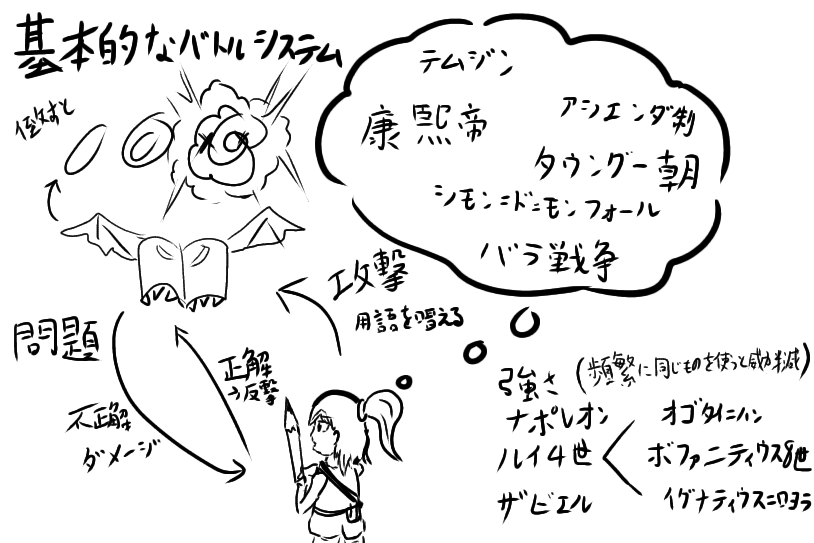 基本的なバトルシステム
倒すと
テムジン
康熙帝
アシエンダ制
タウングー朝
シモン=ド=モンフォール
バラ戦争
攻撃
用語を唱える
問題
正解
→反撃
不正解
ダメージ
強さ(頻繁に同じものを使うと威力半減)
ナポレオン オゴタイ=ハン
ルイ4世 < ボファニティウス8世
ザビエル イグナティウス=ロヨラ